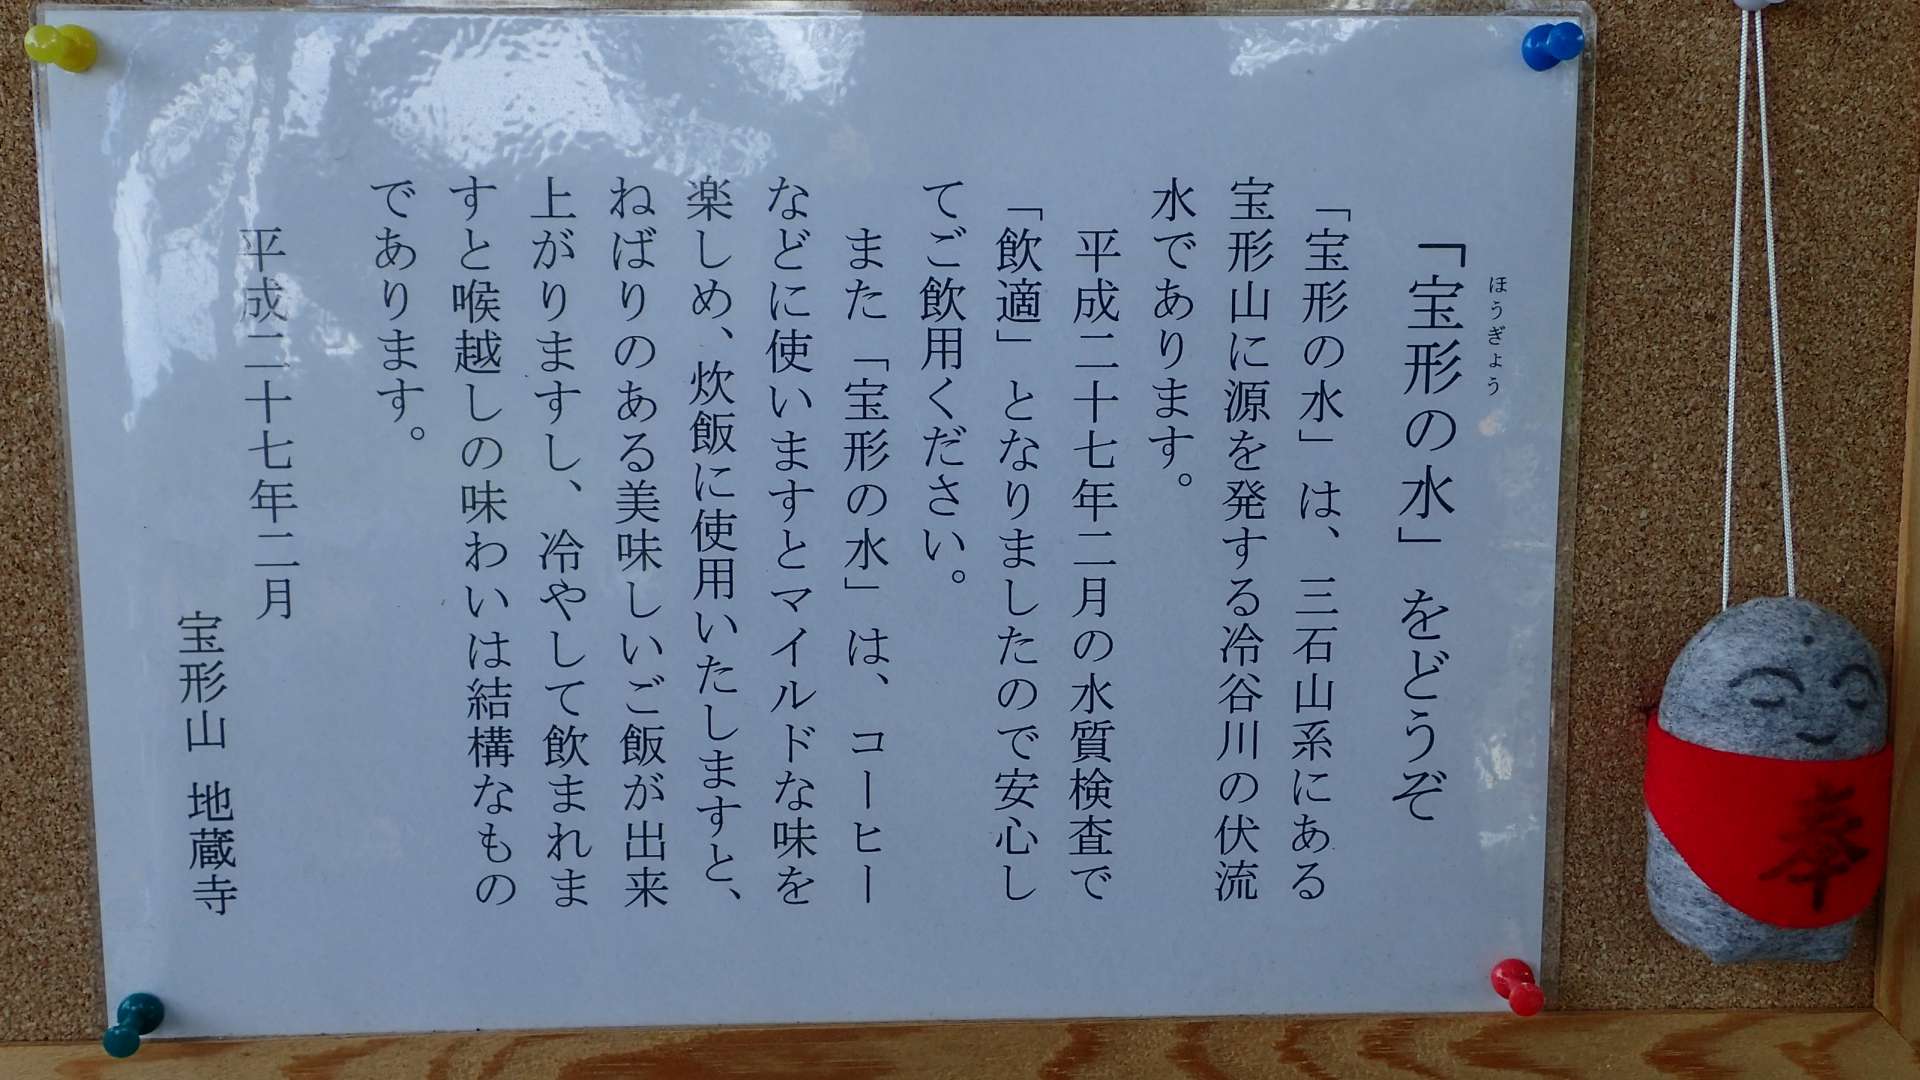 「宝形の水」をどうぞ
ほうぎょう
「宝形の水」は、三石山系にある
宝形山に源を発する冷谷川の伏流
水であります。
平成二十七年二月の水質検査で
「飲適」となりましたので安心し
てご飲用ください。
また「宝形の水」は、コーヒー
などに使いますとマイルドな味を
楽しめ、炊飯に使用いたしますと、
ねばりのある美味しいご飯が出来
上がりますし、冷やして飲まれま
すと喉越しの味わいは結構なもの
であります。
平成二十七年二月
宝形山 地蔵寺
奉